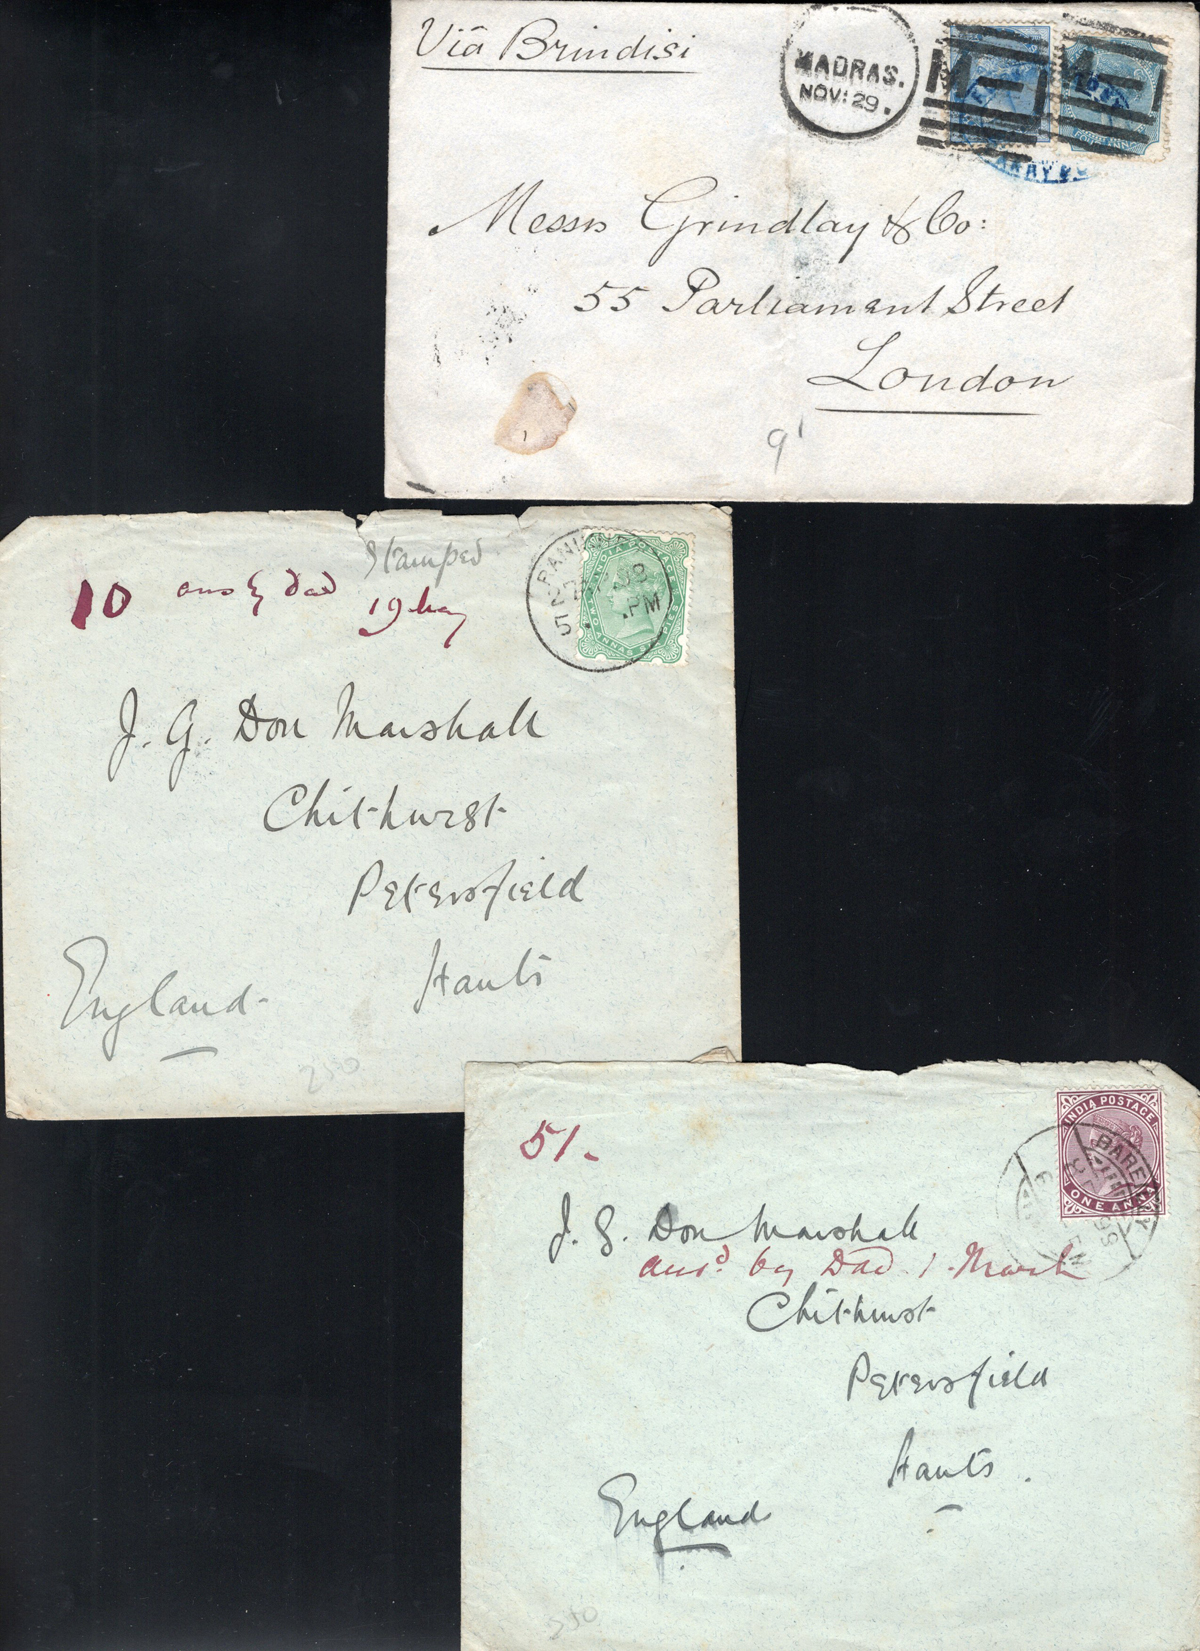 Viâ Brindisi
MADRAS.
NOV: 29.
M-1
M-1
Messrs Grindlay & Co:
55 Parliament Street
London
9'
Stamped
10 ans by Dad
19 May
INDIA POSTAGE
TWO ANNAS SIX PIES
PM
J. G. Don Marshall
Chithurst
Petersfield
Hants
England
2500
51.
INDIA POSTAGE
ONE ANNA
BAREILLY
J. G. Don Marshall
ansd. by Dad 1. March
Chithurst
Petersfield
Hants.
England
250